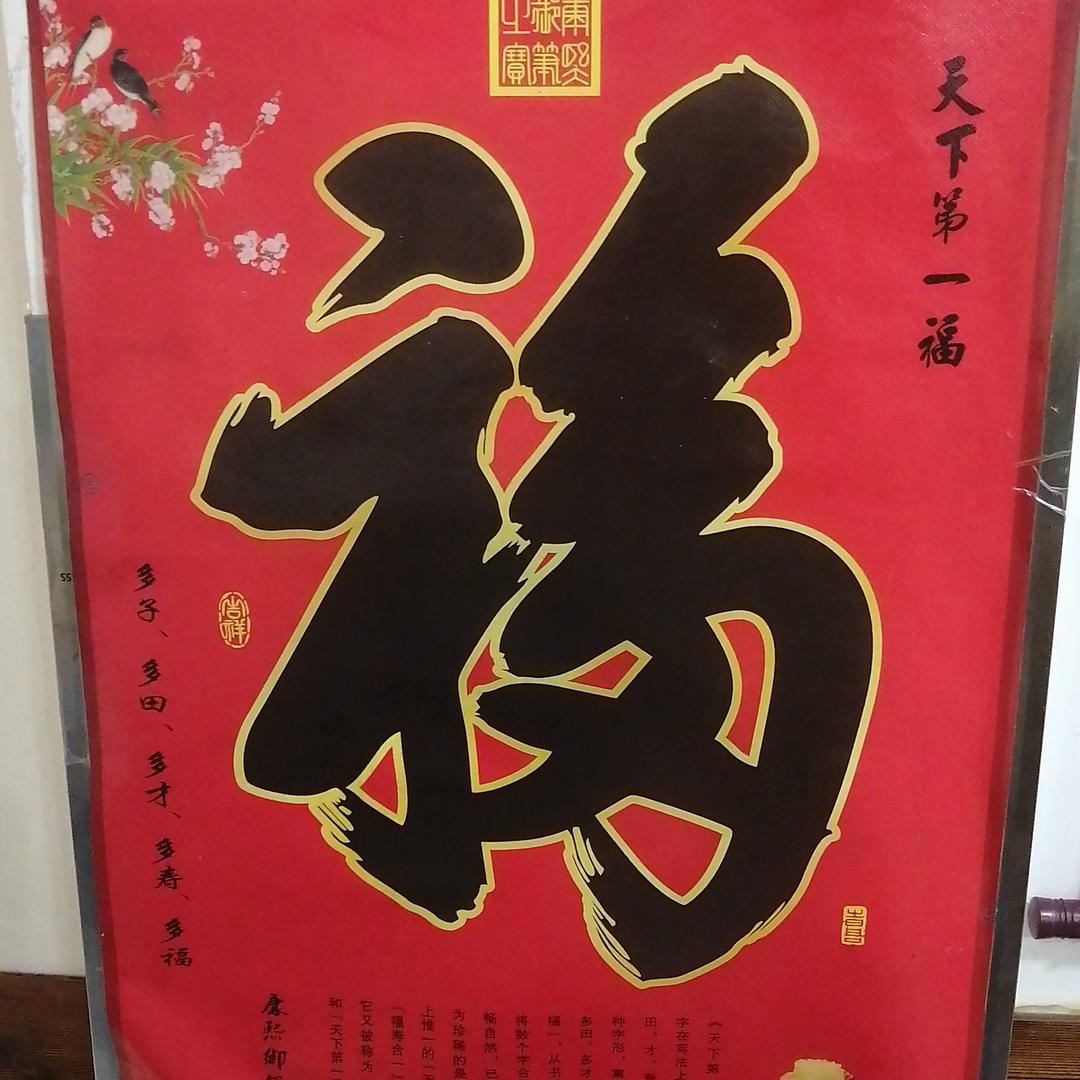 康熙
御筆
之寶
天下第一福
福
多子、多田、多才、多寿、多福
吉祥
《天下第
字在写法上
田、才、
种字形，寓
多田、多才
福”，从书
将数个字合
畅自然，已
为珍稀的是
上惟一的“
“福寿合一”
它又被称为
和“天下第一
康熙御